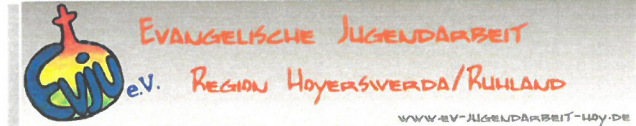 EVANGELISCHE JUGENDARBEIT
EVJU e.V. REGION HOYERSWERDA/RUHLAND
WWW.EV-JUGENDARBEIT-HOY.DE